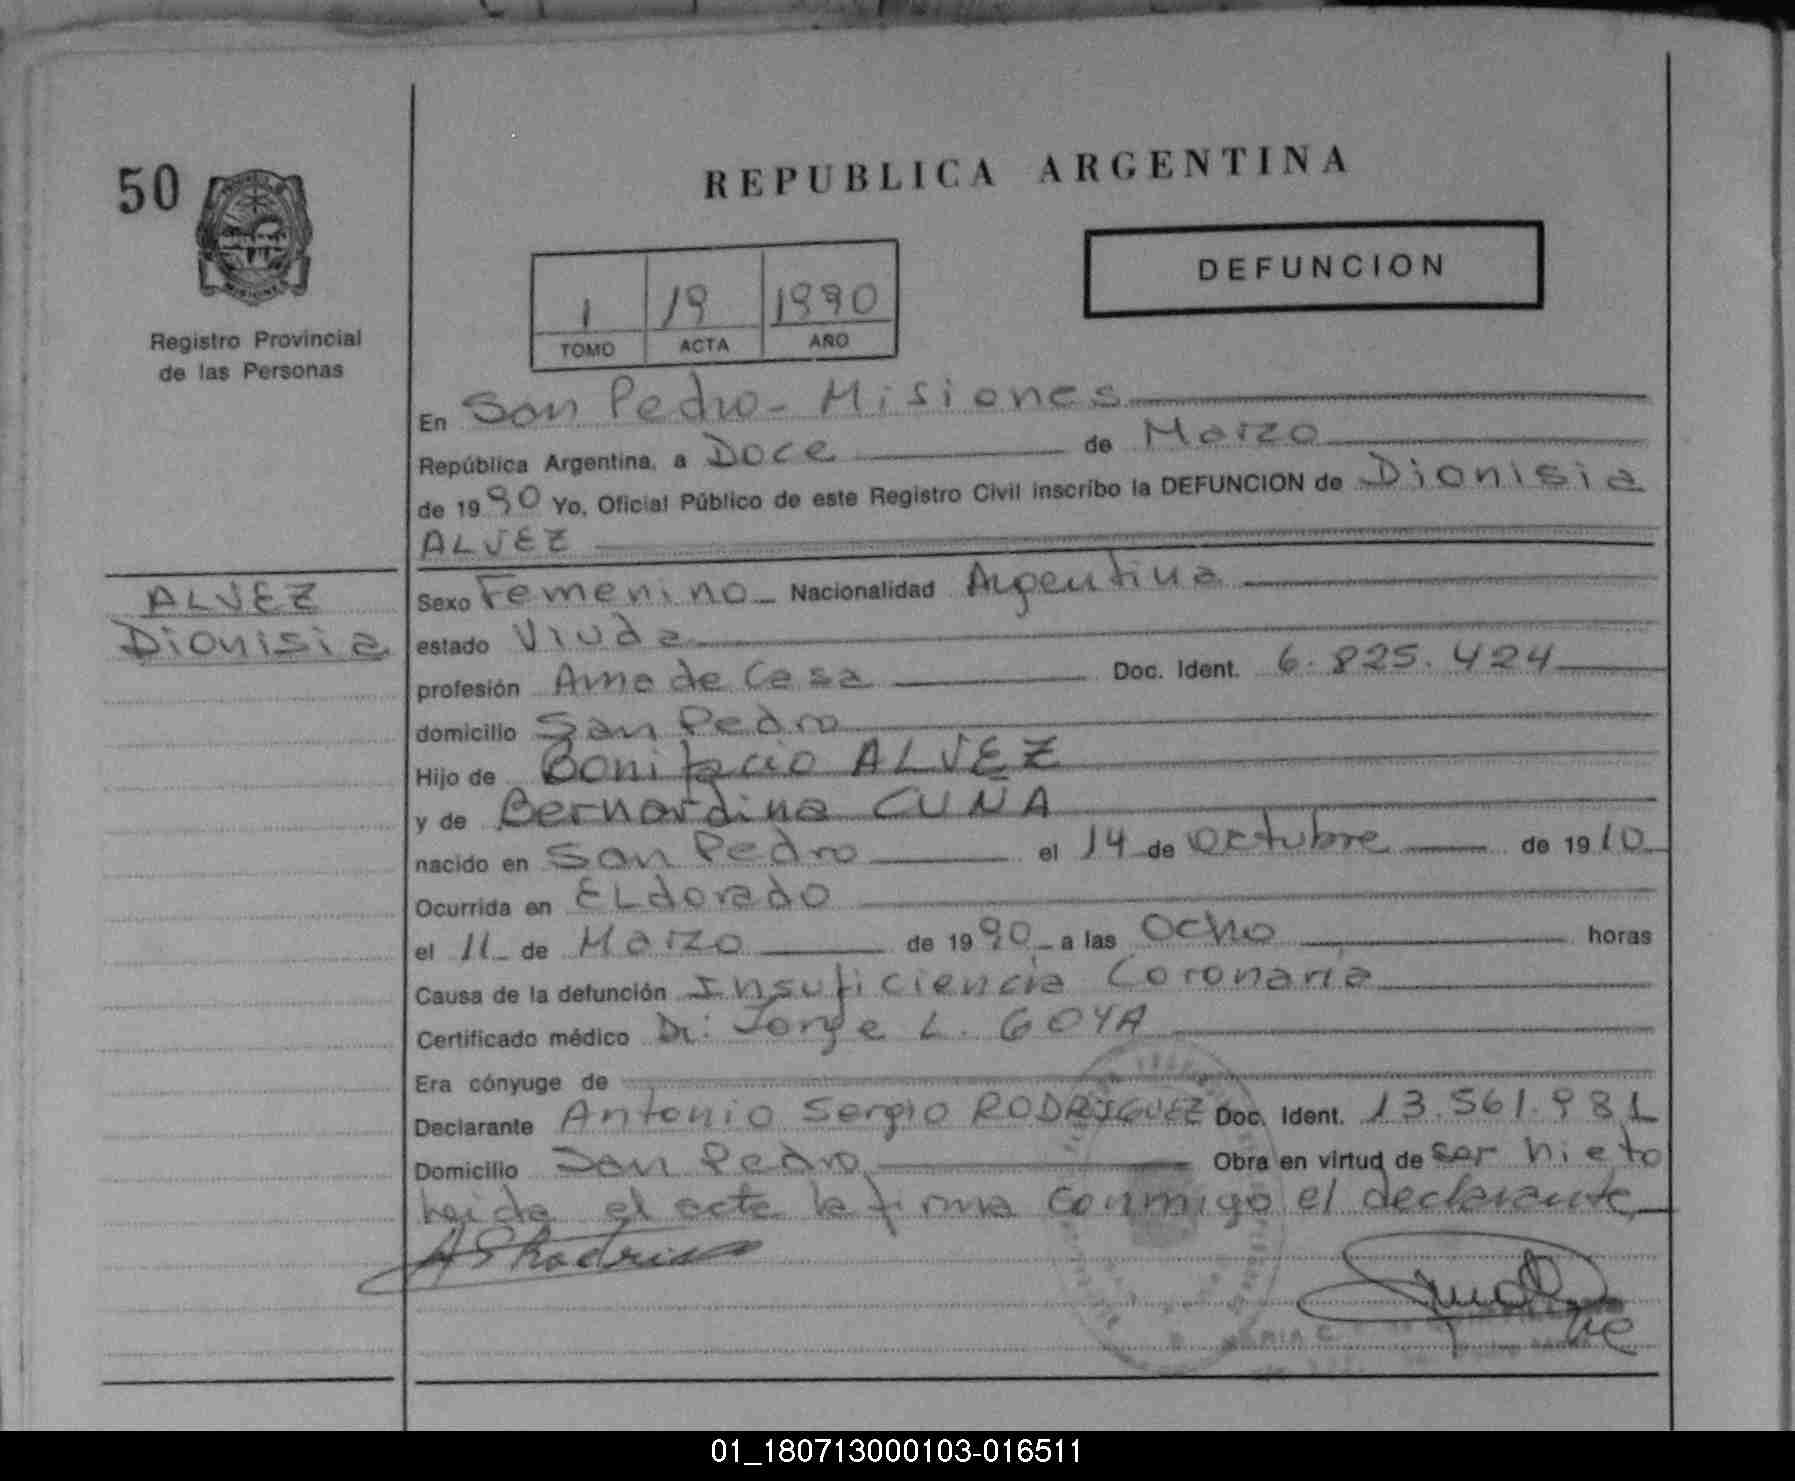 50
Registro Provincial
de las Personas
REPUBLICA ARGENTINA
DEFUNCION
1 19 1990
TOMO ACTA AÑO
En San Pedro - Misiones
República Argentina, a Doce de Marzo
de 1990 Yo, Oficial Público de este Registro Civil inscribo la DEFUNCION de Dionisia
ALVEZ
ALVEZ
Dionisia
Sexo Femenino Nacionalidad Argentina
estado Viuda
profesión Ama de Casa Doc. Ident. 6.825.424
domicilio San Pedro
Hijo de Bonifacio ALVEZ
y de Bernardina CUNA
nacido en San Pedro el 14 de octubre de 1910
Ocurrida en ELdorado
el 11 de Marzo de 1990 a las Ocho horas
Causa de la defunción Insuficiencia Coronaria
Certificado médico Dr: Jorge L. GOYA
Era cónyuge de
Declarante Antonio Sergio RODRIGUEZ Doc. Ident. 13.561.981
Domicilio San Pedro Obra en virtud de ser nieto
leida el acta la firma conmigo el declarante
01_180713000103-016511